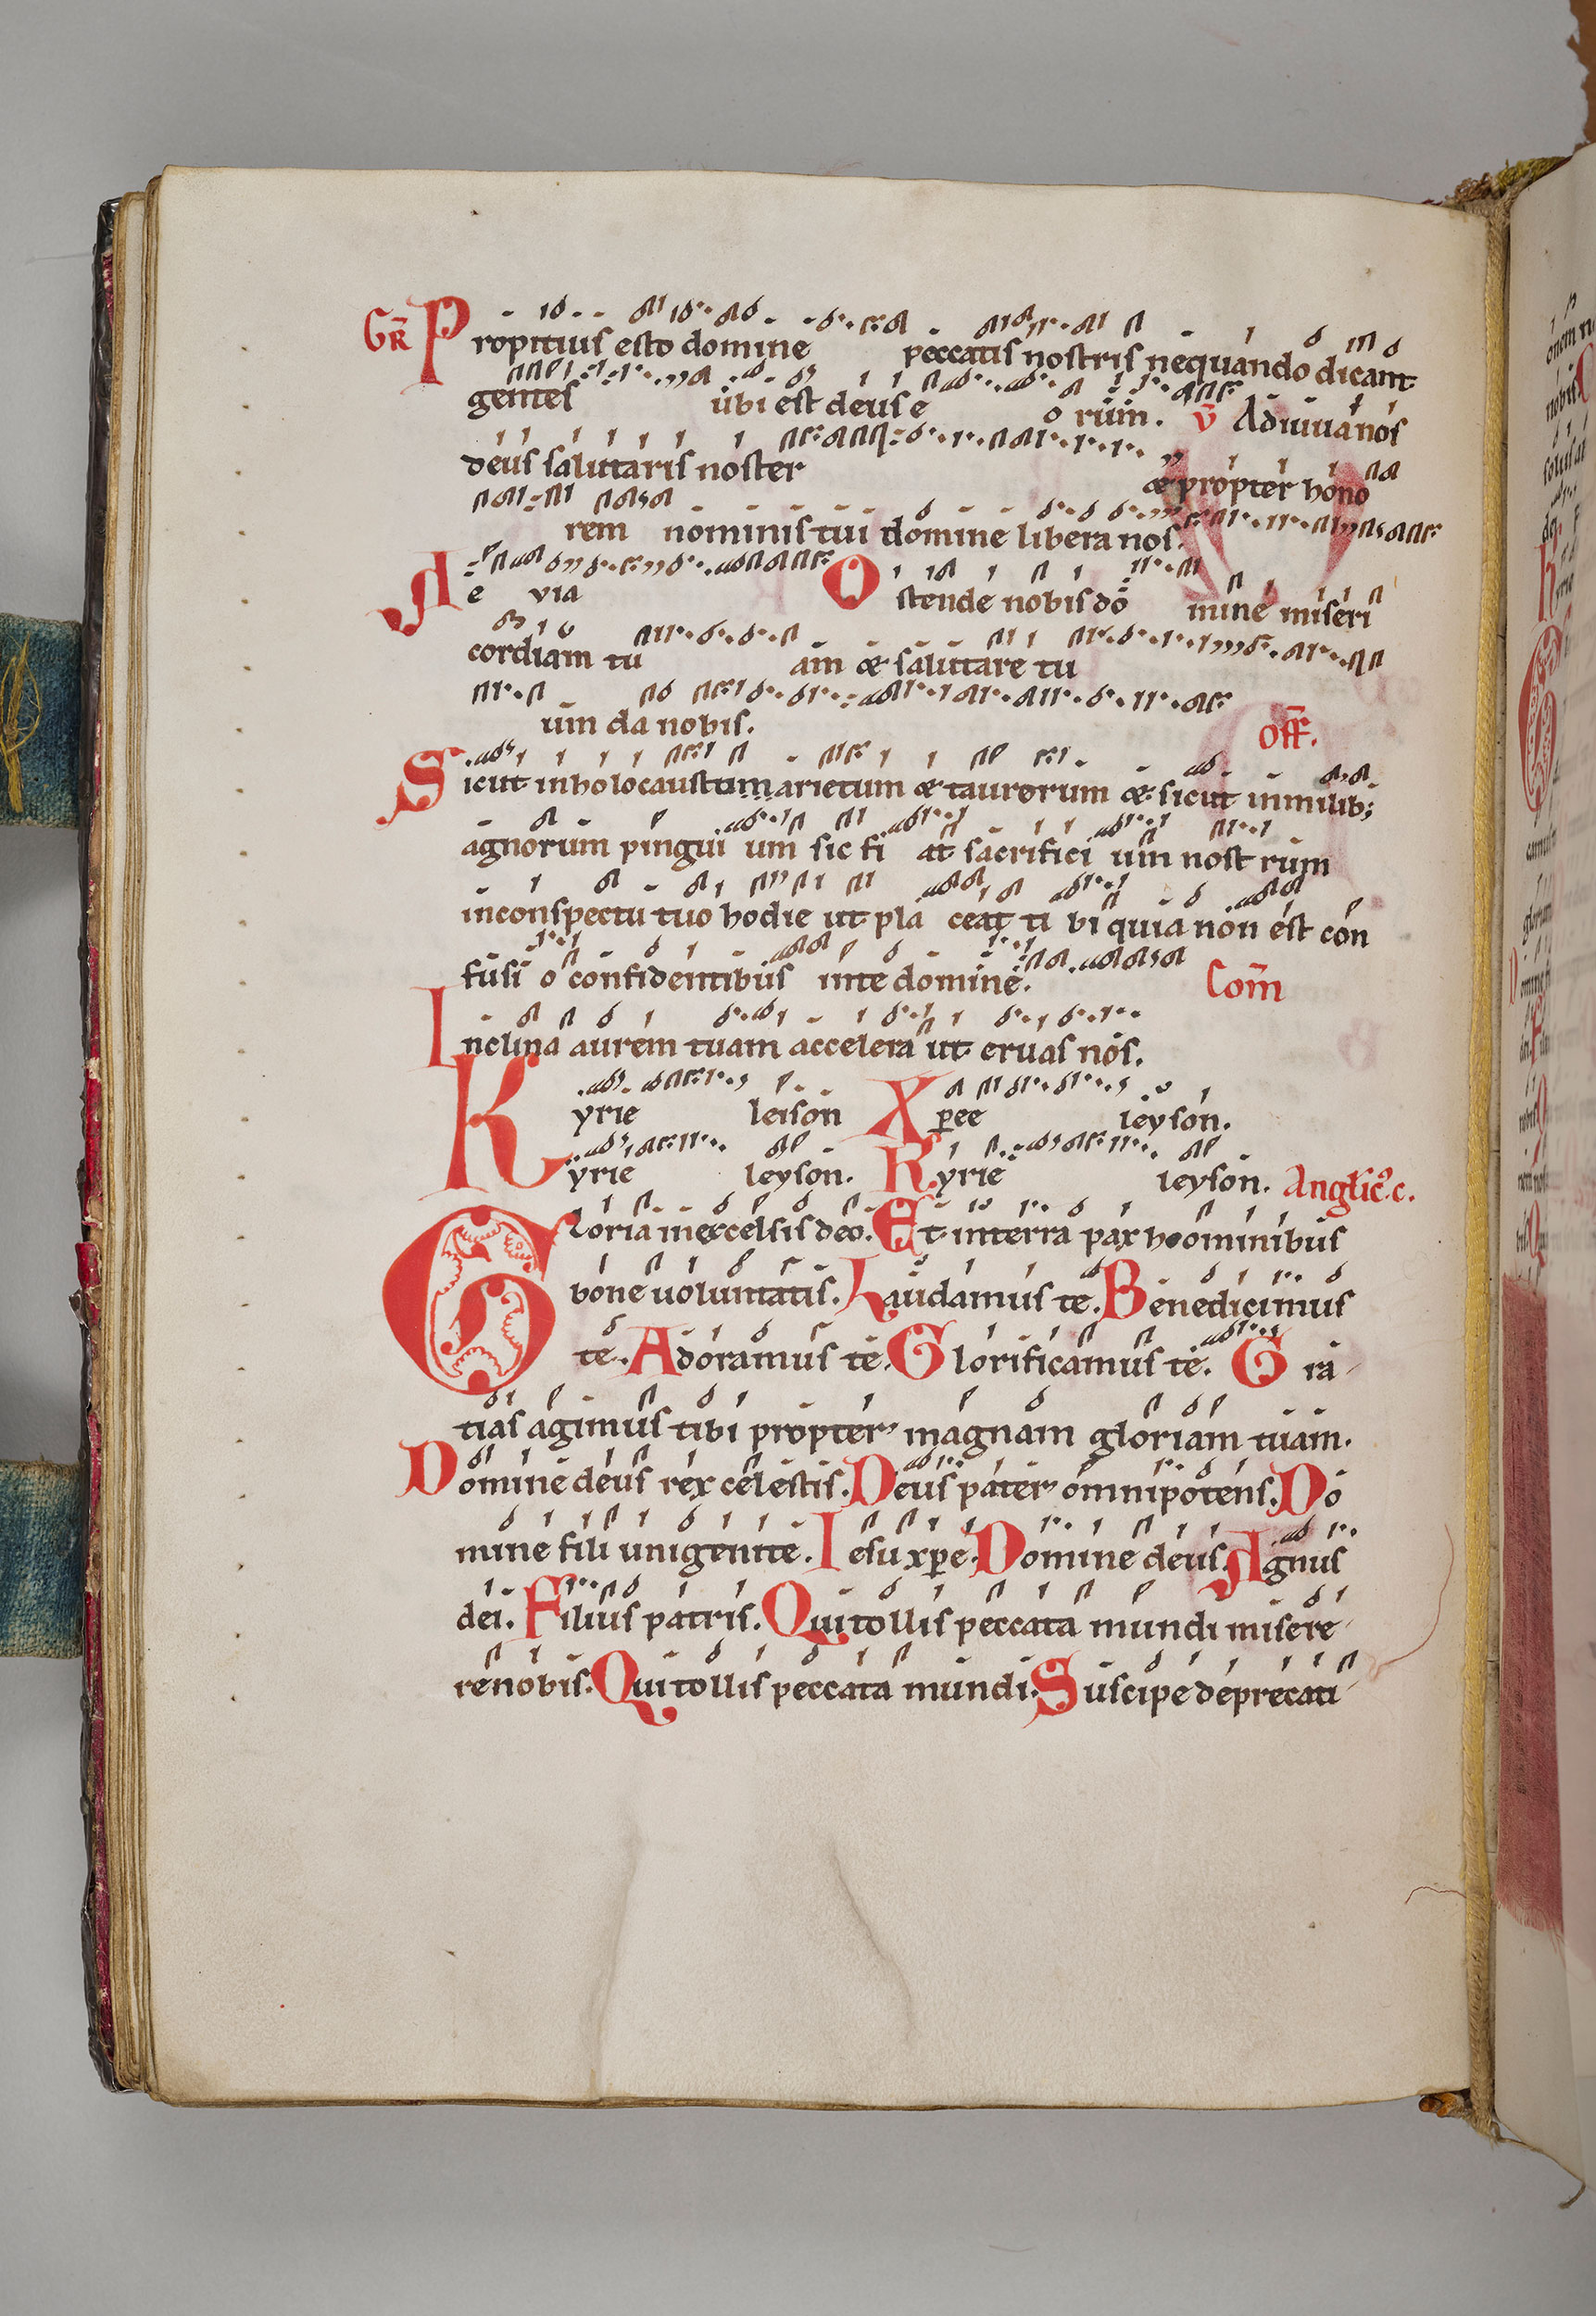 GR Propitius esto domine peccatis nostris nequando dicant
gentes ubi est deus eorum. V Adiuua nos
deus salutaris noster & propter hono
rem nominis tui domine libera nos.
Ae via Ostende nobis domine miseri
cordiam tuam & salutare tu
um da nobis. Off.
Sicut in holocaustum arietum & taurorum & sicut in milib;
agnorum pinguium sic fiat sacrificium nostrum
in conspectu tuo hodie ut placeat tibi quia non est con
fusio confidentibus in te domine. Com
Inclina aurem tuam accelera ut eruas nos.
Kyrie leison Xpee leyson.
Kyrie leyson. Kyrie leyson. Anglic. c.
Gloria in excelsis deo. Et in terra pax hominibus
bone uoluntatis. Laudamus te. Benedicimus
te. Adoramus te. Glorificamus te. Gra
tias agimus tibi propter magnam gloriam tuam.
Domine deus rex celestis. Deus pater omnipotens. Do
mine fili unigenite. Iesu xpe. Domine deus. Agnus
dei. Filius patris. Qui tollis peccata mundi misere
re nobis. Qui tollis peccata mundi. Suscipe deprecati